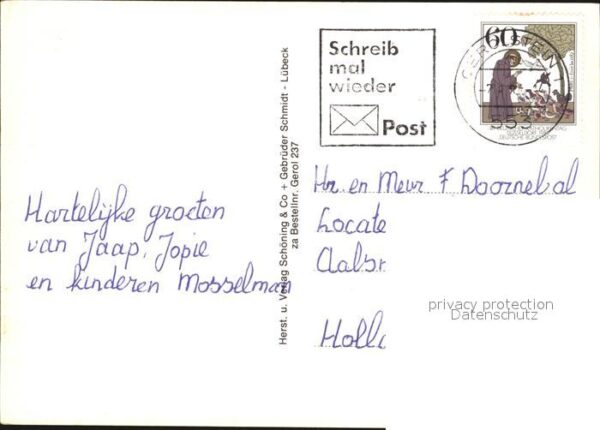 Schreib
mal
wieder
Post
60
GEROLSTEIN 1
553
Hartelijke groeten
van Jaap, Jopie
en kinderen Mosselman
Herst. u. Verlag Schöning & Co + Gebrüder Schmidt - Lübeck
za Bestellnr. Gerol 237
Hr en Mevr F Doornebal
Locate
Aalsr
Holl
privacy protection
Datenschutz